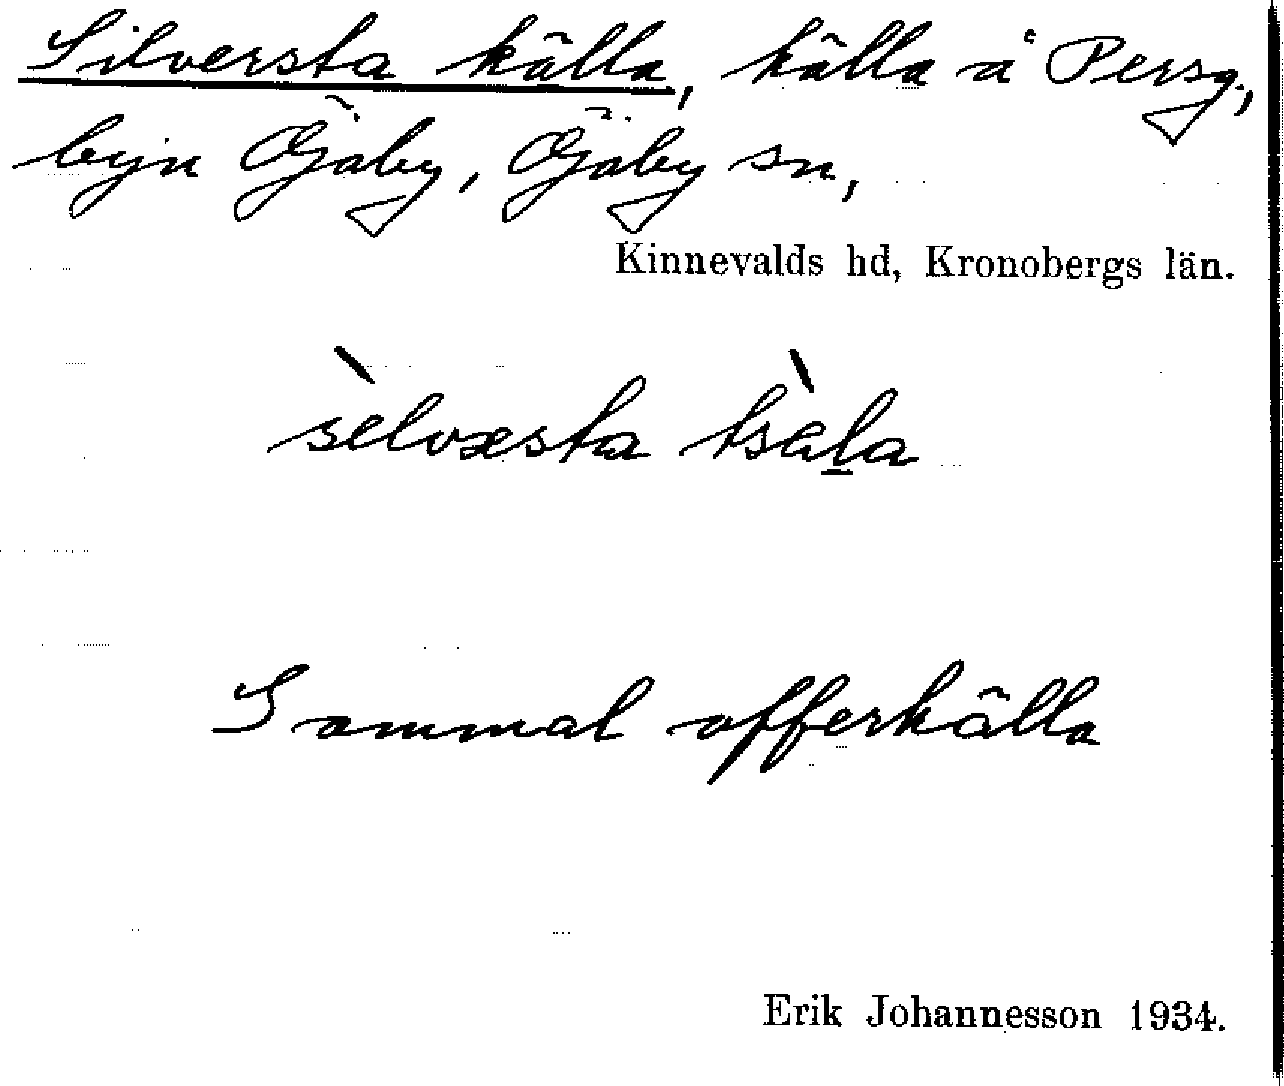 Silversta källa, källa å Persg.,
byn Öjaby, Öjaby sn,
Kinnevalds hd, Kronobergs län.
sèlvæsta tsàḻa
Gammal offerkälla
Erik Johannesson 1934.